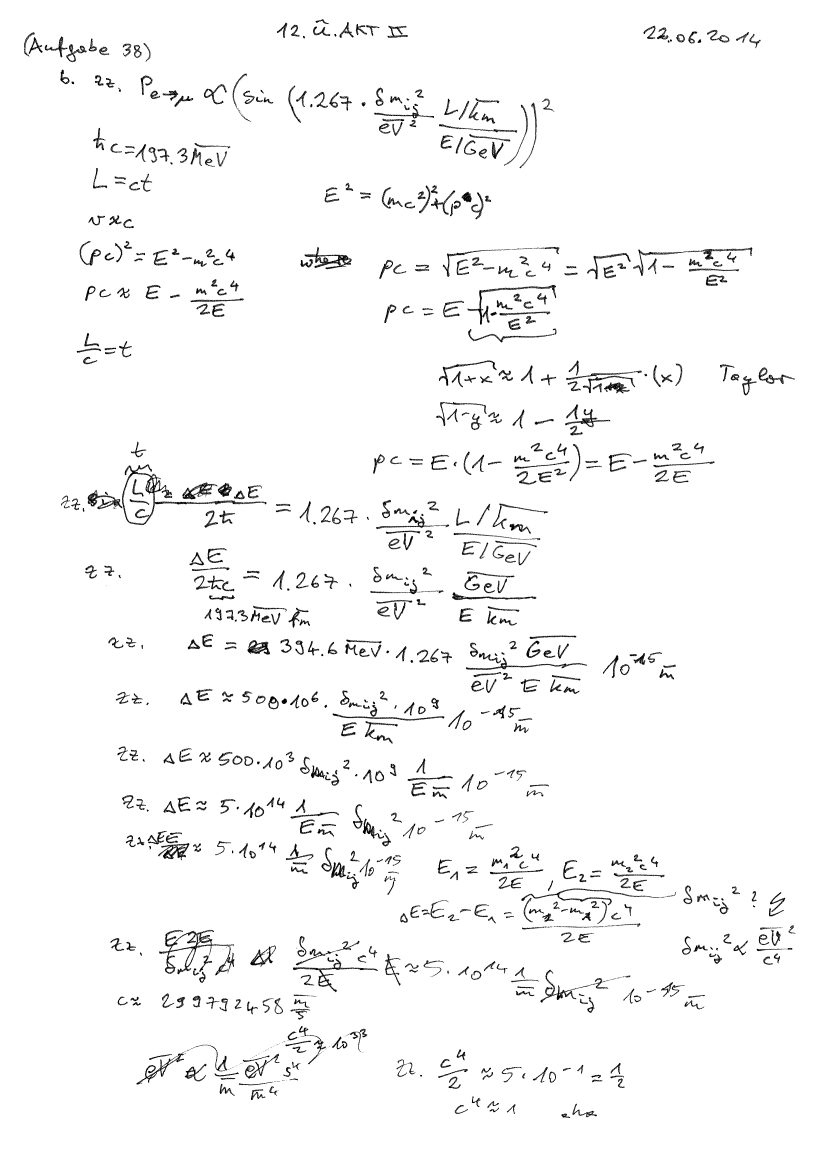 12. Ü. AKT II
22.06.2014
(Aufgabe 38)
b. zz. P_{e→μ} ∝ (sin (1.267 · δm_{ij}²/e̅V̅² · L/k̅m̅ / E/G̅e̅V̅))²
ħc = 197.3 M̅e̅V̅
L = ct
E² = (mc²)² + (p·c)²
v ≈ c
(pc)² = E² - m²c⁴
pc = √(E² - m²c⁴) = √E² √(1 - m²c⁴/E²)
pc ≈ E - m²c⁴/2E
pc = E √(1 - m²c⁴/E²)
L/c = t
√(1+x) ≈ 1 + 1/2 · (x) Taylor
√(1-y) ≈ 1 - 1y/2
pc = E · (1 - m²c⁴/2E²) = E - m²c⁴/2E
t
zz. L/c ΔE/2ħ = 1.267 · δm_{ij}²/e̅V̅² · L/k̅m̅ / E/G̅e̅V̅
zz. ΔE/2ħc = 1.267 · δm_{ij}²/e̅V̅² · G̅e̅V̅/E k̅m̅
197.3 M̅e̅V̅ f̅m̅
zz. ΔE = 394.6 M̅e̅V̅ · 1.267 δm_{ij}² G̅e̅V̅/e̅V̅² E k̅m̅ 10⁻¹⁵ m̅
zz. ΔE ≈ 500 · 10⁶ · δm_{ij}² · 10⁹/E k̅m̅ 10⁻¹⁵ m̅
zz. ΔE ≈ 500 · 10³ δm_{ij}² · 10⁹ 1/E m̅ 10⁻¹⁵ m̅
zz. ΔE ≈ 5 · 10¹⁴ 1/E m̅ δm_{ij}² 10⁻¹⁵ m̅
zz. ΔE E ≈ 5 · 10¹⁴ 1/m̅ δm_{ij}² 10⁻¹⁵ m̅
E₁ = m₁²c⁴/2E , E₂ = m₂²c⁴/2E
ΔE = E₂ - E₁ = (m₂² - m₁²)c⁴/2E
δm_{ij}² ? ↯
δm_{ij}² ∝ e̅V̅²/c⁴
zz. δm_{ij}² c⁴/2E E ≈ 5 · 10¹⁴ 1/m̅ δm_{ij}² 10⁻¹⁵ m̅
c ≈ 299792458 m̅/s̅
c⁴/2 ≈ 10³³
e̅V̅² ∝ 1/m̅ e̅V̅² s⁴/m̅⁴
zz. c⁴/2 ≈ 5 · 10⁻¹ = 1/2
c⁴ ≈ 1 aha